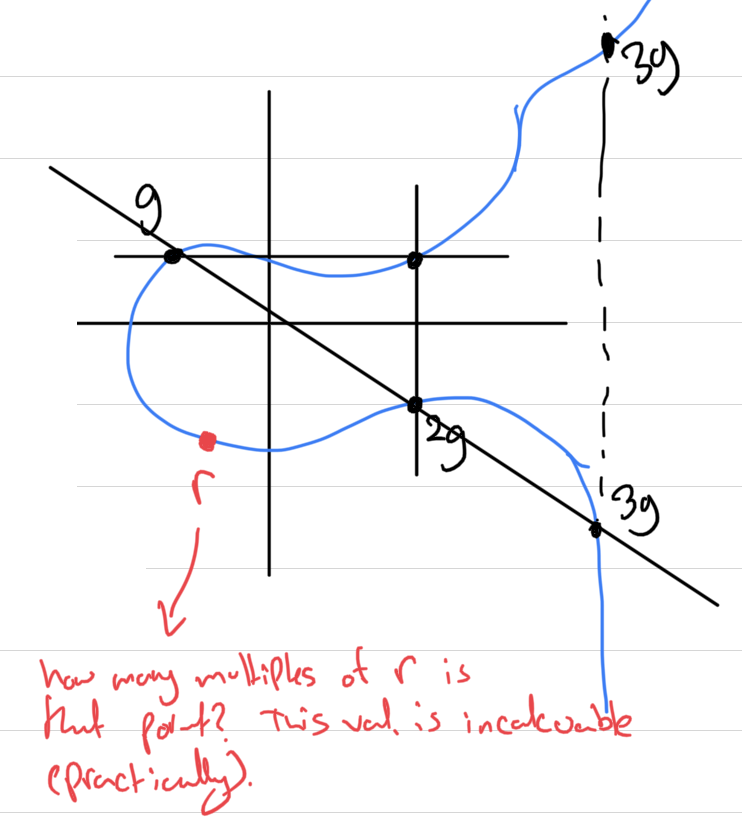 3g
g
2g
3g
r
how many multiples of r is
that point? This val. is incalcuable
(practically).